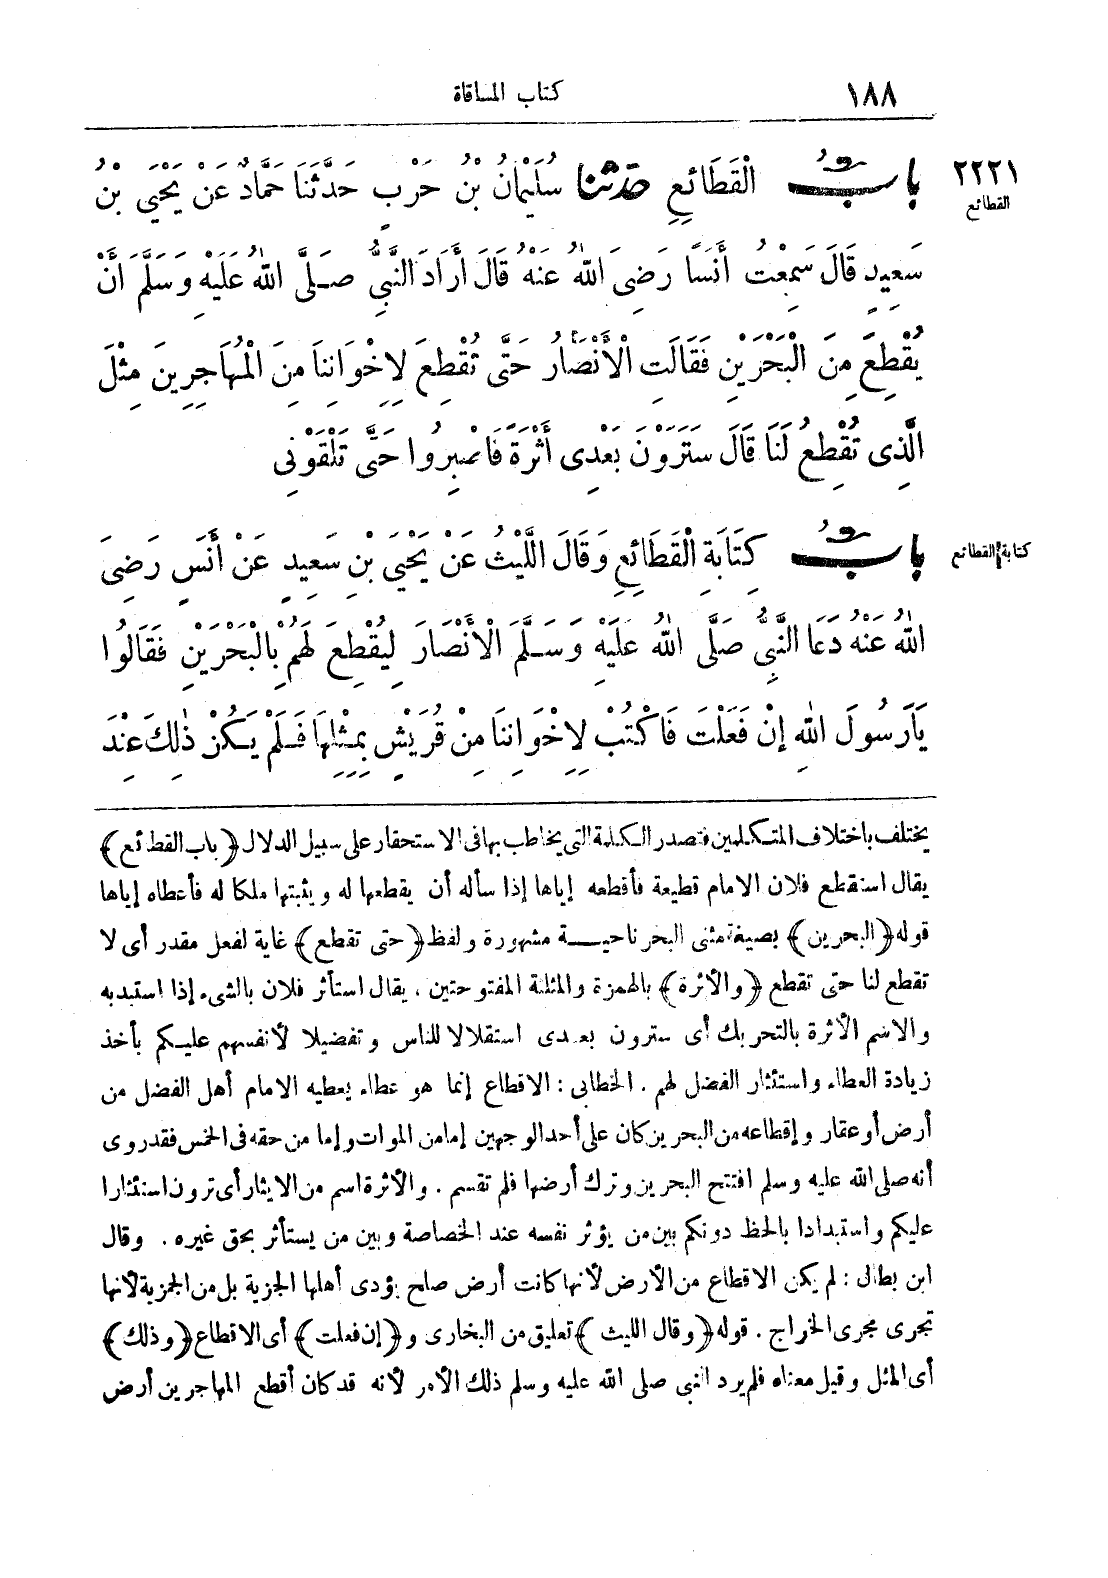 ١٨٨ كتاب المساقاة
٢٢٢١ القطائع
بابُ الْقَطَائِعِ حَدَّثَنَا سُلَيْمَانُ بْنُ حَرْبٍ حَدَّثَنَا حَمَّادٌ عَنْ يَحْيَى بْنِ
سَعِيدٍ قَالَ سَمِعْتُ أَنَسًا رَضِيَ اللهُ عَنْهُ قَالَ أَرَادَ النَّبِيُّ صَلَّى اللهُ عَلَيْهِ وَسَلَّمَ أَنْ
يُقْطِعَ مِنَ الْبَحْرَيْنِ فَقَالَتِ الْأَنْصَارُ حَتَّى تُقْطِعَ لِإِخْوَانِنَا مِنَ الْمُهَاجِرِينَ مِثْلَ
الَّذِى تُقْطِعُ لَنَا قَالَ سَتَرَوْنَ بَعْدِى أَثَرَةً فَاصْبِرُوا حَتَّى تَلْقَوْنِى
كتابة القطائع
بابُ كِتَابَةِ الْقَطَائِعِ وَقَالَ اللَّيْثُ عَنْ يَحْيَى بْنِ سَعِيدٍ عَنْ أَنَسٍ رَضِيَ
اللهُ عَنْهُ دَعَا النَّبِيُّ صَلَّى اللهُ عَلَيْهِ وَسَلَّمَ الْأَنْصَارَ لِيُقْطِعَ لَهُمْ بِالْبَحْرَيْنِ فَقَالُوا
يَارَسُولَ اللهِ إِنْ فَعَلْتَ فَاكْتُبْ لِإِخْوَانِنَا مِنْ قُرَيْشٍ بِمِثْلِهَا فَلَمْ يَكُنْ ذٰلِكَ عِنْدَ
يختلف باختلاف المتكلمين فتصدر الكلمة التى يخاطب بها فى الاستحقار على سبيل الدلال ﴿باب القطائع﴾
يقال استقطع فلان الامام قطيعة فأقطعه إياها إذا سأله أن يقطعها له ويثبتها ملكا له فأعطاه إياها
قوله ﴿البحرين﴾ بصيغة مثنى البحر ناحيــة مشهورة ولفظ ﴿حتى تقطع﴾ غاية لفعل مقدر أى لا
تقطع لنا حتى تقطع ﴿والأثرة﴾ بالهمزة والمثلثة المفتوحتين . يقال استأثر فلان بالشىء إذا استبد به
والاسم الأثرة بالتحريك أى سترون بعدى استقلالا للناس وتفضيلا لأنفسهم عليكم بأخذ
زيادة العطاء واستئثار الفضل لهم . الخطابى : الاقطاع إنما هو عطاء يعطيه الامام أهل الفضل من
أرض أو عقار وإقطاعه من البحرين كان على أحد الوجهين إما من الموات وإما من حقه فى الخمس فقد روى
أنه صلى الله عليه وسلم افتتح البحرين وترك أرضها فلم تقسم . والأثرة اسم من الايثار أى ترون استئثارا
عليكم واستبدادا بالحظ دونكم بين من يؤثر نفسه عند الخصاصة وبين من يستأثر بحق غيره . وقال
ابن بطال : لم يكن الاقطاع من الأرض لأنها كانت أرض صلح يؤدى أهلها الجزية بل من الجزية لأنها
تجرى مجرى الخراج . قوله ﴿وقال الليث﴾ تعليق من البخارى و﴿إن فعلت﴾ أى الاقطاع ﴿وذلك﴾
أى المثل وقيل معناه فلم يرد النبى صلى الله عليه وسلم ذلك الأمر لأنه قد كان أقطع المهاجرين أرض